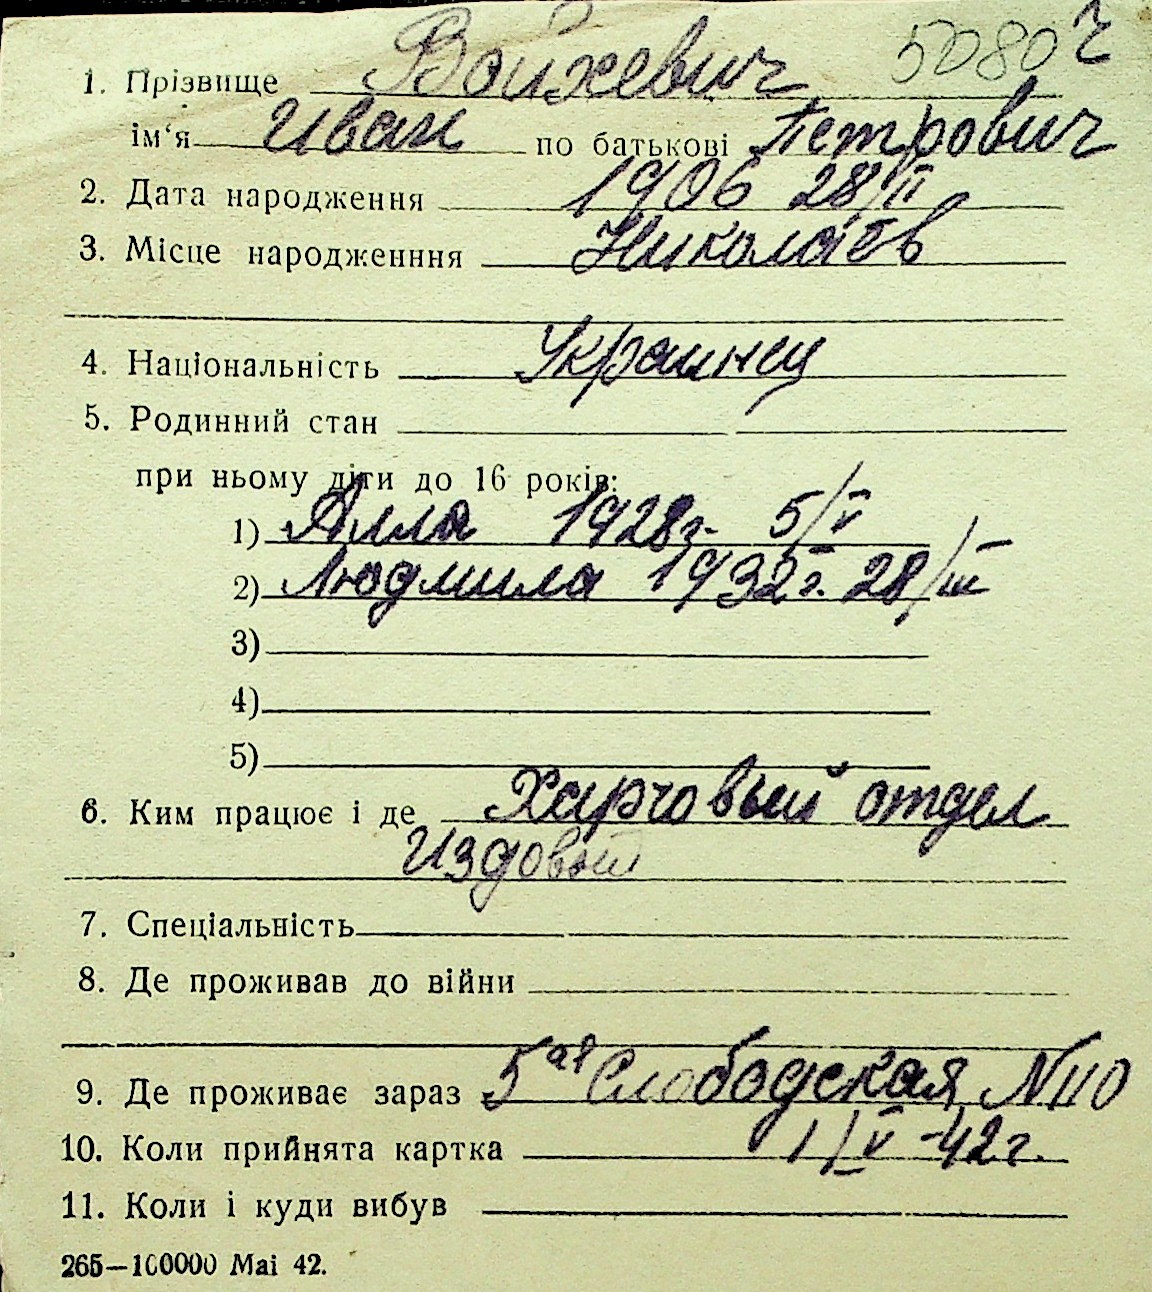 5080 г
1. Прізвище Войхевич
ім'я Иван по батькові Петрович
2. Дата народження 1906 28/II
3. Місце народженння Николаев
4. Національність Украинец
5. Родинний стан
при ньому діти до 16 років:
1) Алла 1928г. 5/V
2) Людмила 1932г. 28/III
3)
4)
5)
6. Ким працює і де Харчовый отдел
Издовый
7. Спеціальність
8. Де проживав до війни
9. Де проживає зараз 5ая Слободская N 110
10. Коли прийнята картка 1/V-42г.
11. Коли і куди вибув
265—100000 Маі 42.